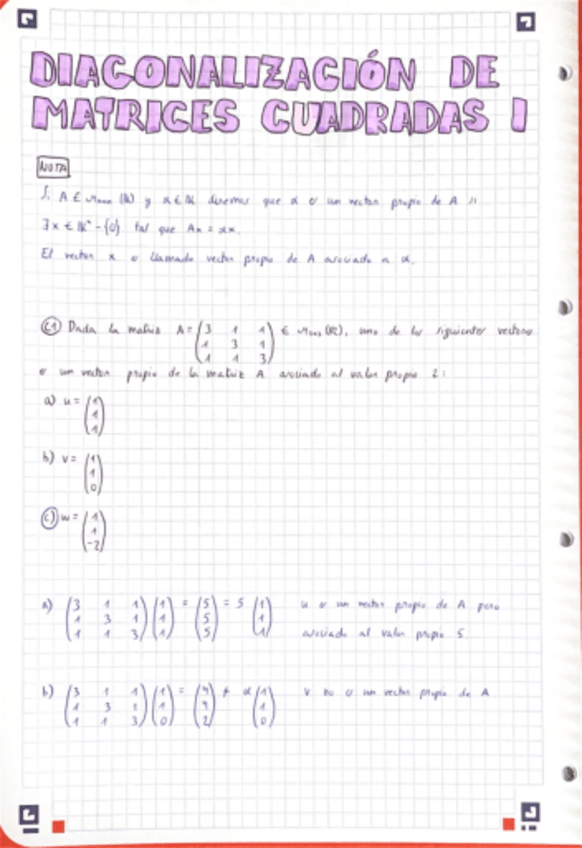 DIAGONALIZACIÓN DE
MATRICES CUADRADAS I
NOTA
Si A ∈ Mnxn (K) y α ∈ K diremos que α es un vector propio de A si
∃x ∈ Kⁿ - {0} tal que Ax = αx.
El vector x es llamado vector propio de A asociado a α.
E1 Dada la matriz A = (3 1 1; 1 3 1; 1 1 3) ∈ M3x3 (R), uno de los siguientes vectores
es un vector propio de la matriz A asociado al valor propio 2:
a) u = (1; 1; 1)
b) v = (1; 1; 0)
c) w = (1; 1; -2)
a) (3 1 1; 1 3 1; 1 1 3) (1; 1; 1) = (5; 5; 5) = 5 (1; 1; 1) u es un vector propio de A pero
asociado al valor propio 5
b) (3 1 1; 1 3 1; 1 1 3) (1; 1; 0) = (4; 4; 2) ≠ α (1; 1; 0) v no es un vector propio de A